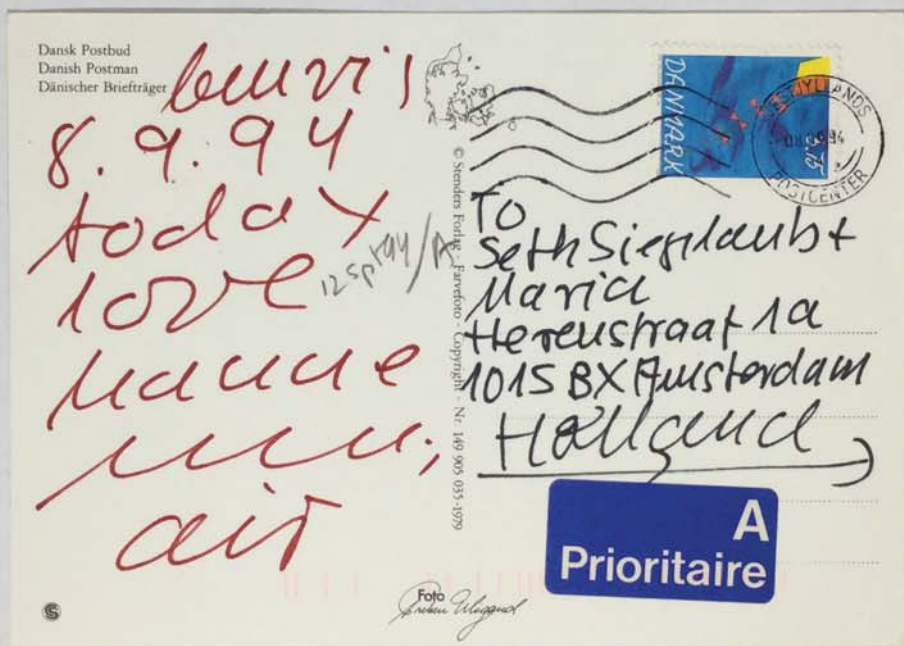 Dansk Postbud
Danish Postman
Dänischer Briefträger
8.9.94
today
love
air
12 sp 94/A
© Stenders Forlag - Farvefoto - Copyright - Nr. 149 905 035-1979
DANMARK
JYLLANDS
08.09.94
POSTCENTER
To
Seth Siegelaub +
Maria
Herenstraat 1a
1015 BX Amsterdam
Holland
A
Prioritaire
Foto